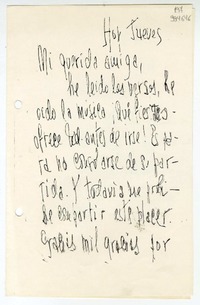 Hoy Jueves
Mi querida amiga,
he leído los versos, he
oído la música, ¡que fiesta
ofrece Ud. antes de irse! Es pa-
ra no consolarse de su par-
tida. Y todavía se prohi-
be compartir este placer.
Gracias mil gracias por